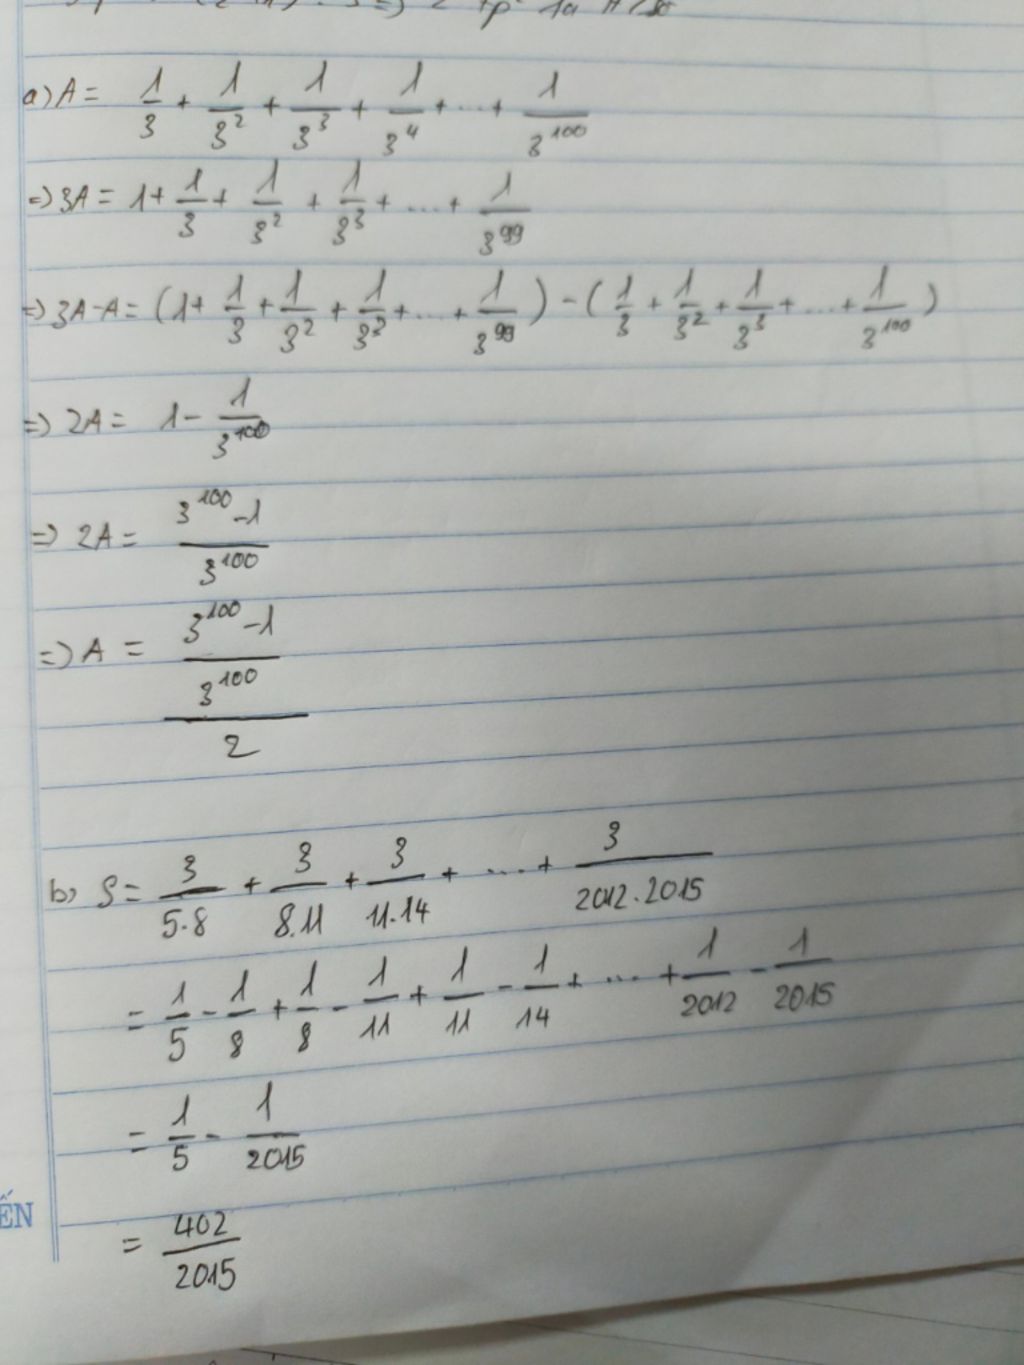 a) A = 1/3 + 1/3^2 + 1/3^3 + 1/3^4 + ... + 1/3^100
=> 3A = 1 + 1/3 + 1/3^2 + 1/3^3 + ... + 1/3^99
=> 3A - A = (1 + 1/3 + 1/3^2 + 1/3^3 + ... + 1/3^99) - (1/3 + 1/3^2 + 1/3^3 + ... + 1/3^100)
=> 2A = 1 - 1/3^100
=> 2A = (3^100 - 1)/3^100
=> A = ((3^100 - 1)/3^100)/2
b) S = 3/5.8 + 3/8.11 + 3/11.14 + ... + 3/2012.2015
= 1/5 - 1/8 + 1/8 - 1/11 + 1/11 - 1/14 + ... + 1/2012 - 1/2015
= 1/5 - 1/2015
ẾN
= 402/2015